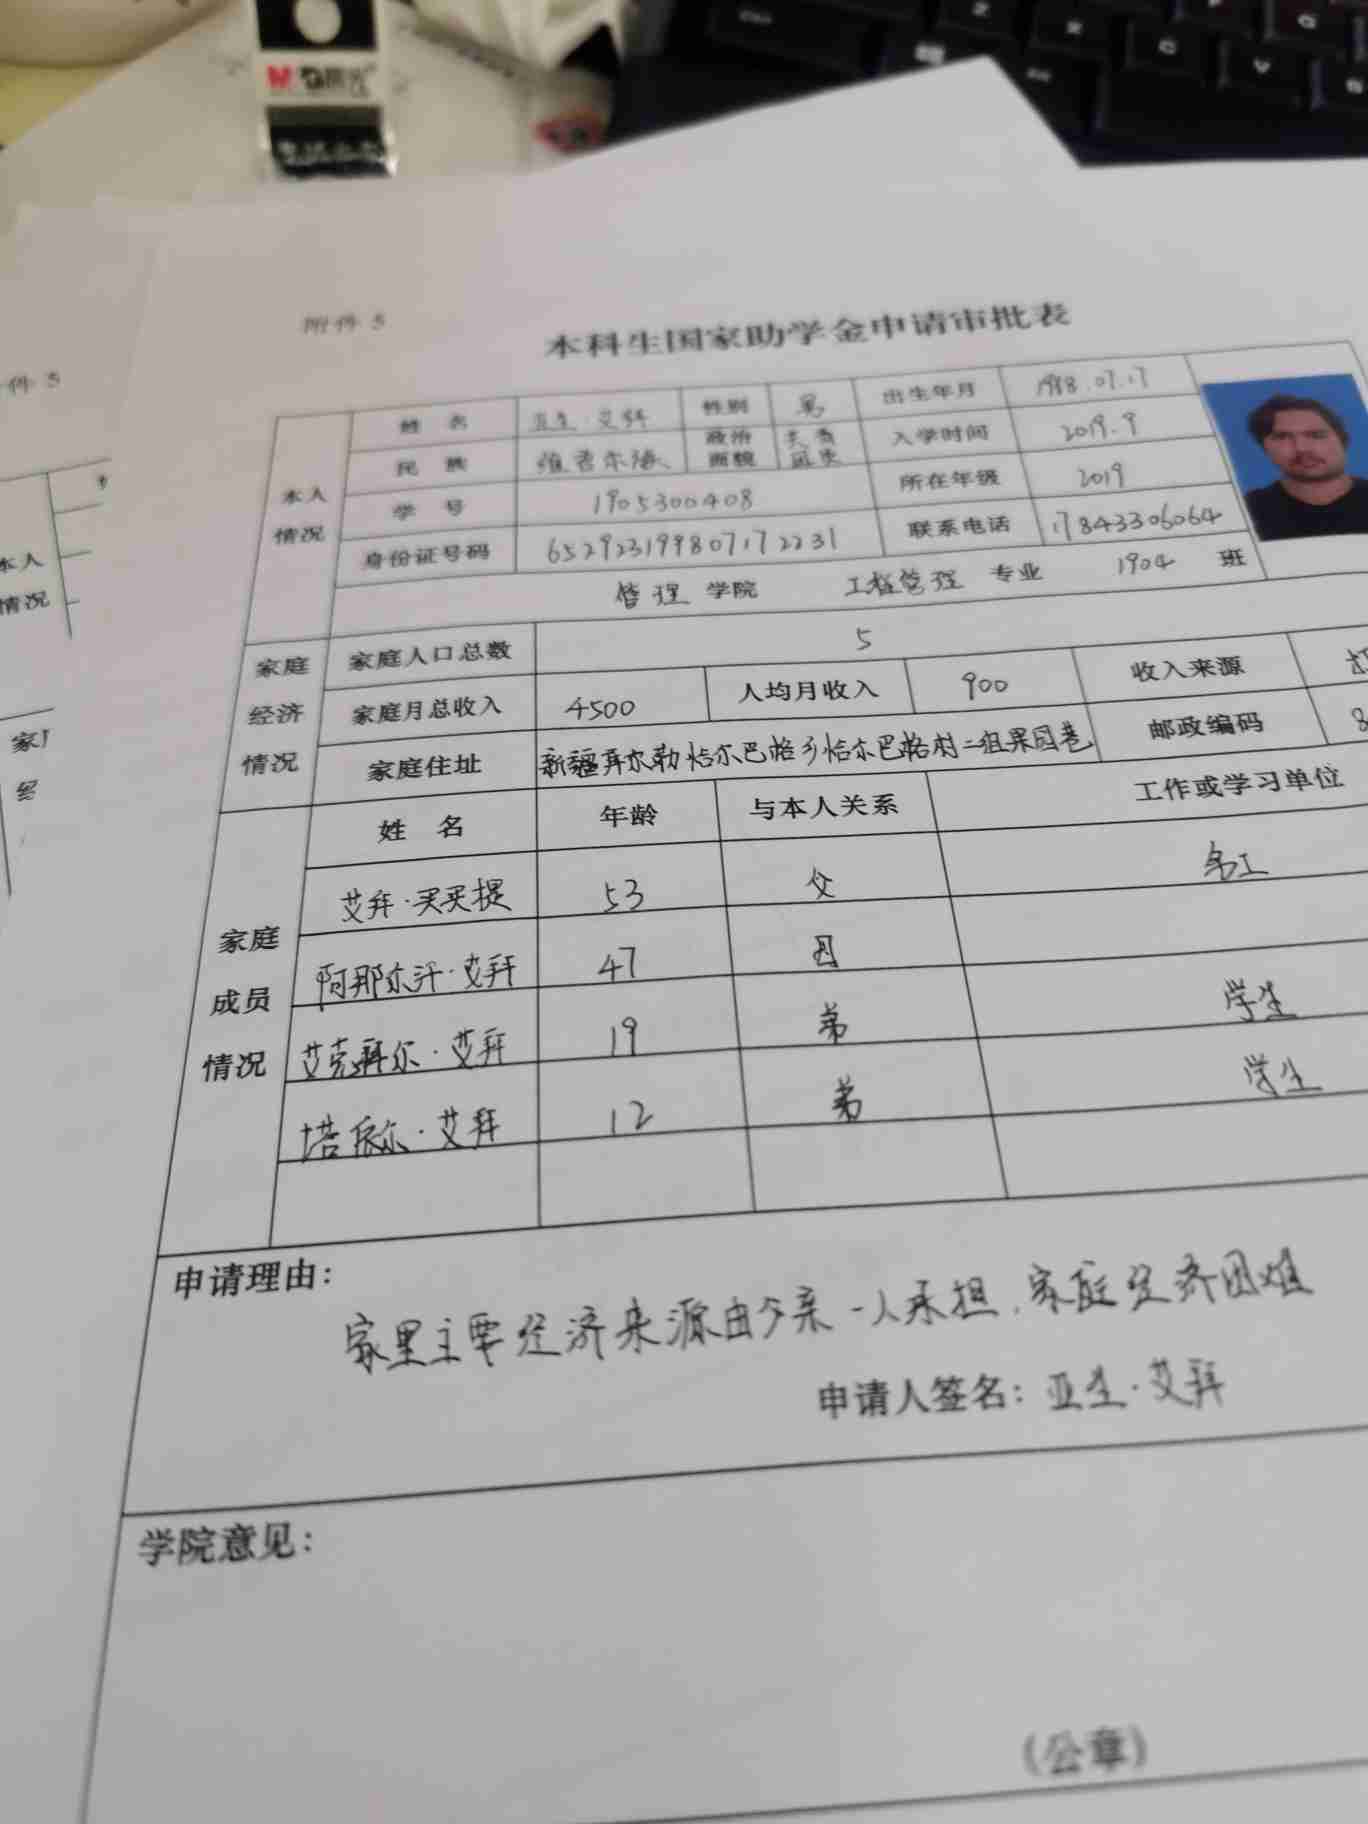 M&G晨光
Z
X
C
V
附件 5
件 5
本科生国家助学金申请审批表
本人情况
姓 名 亚生·艾拜 性别 男 出生年月 1998.07.17
民 族 维吾尔族 政治面貌 共青团员 入学时间 2019.9
学 号 1905300408 所在年级 2019
身份证号码 652923199807172231 联系电话 17843306064
管理 学院 工程管理 专业 1904 班
家庭经济情况
家庭人口总数 5
家庭月总收入 4500 人均月收入 900 收入来源
家庭住址 新疆库尔勒恰尔巴格乡恰尔巴格村二组果园巷 邮政编码 8
家庭成员情况
姓 名 年龄 与本人关系 工作或学习单位
艾拜·买买提 53 父 务工
阿那尔汗·艾拜 47 母
艾克拜尔·艾拜 19 弟 学生
塔依尔·艾拜 12 弟 学生
申请理由：
家里主要经济来源由父亲一人承担，家庭经济困难
申请人签名：亚生·艾拜
学院意见：
(公章)
本人
情况